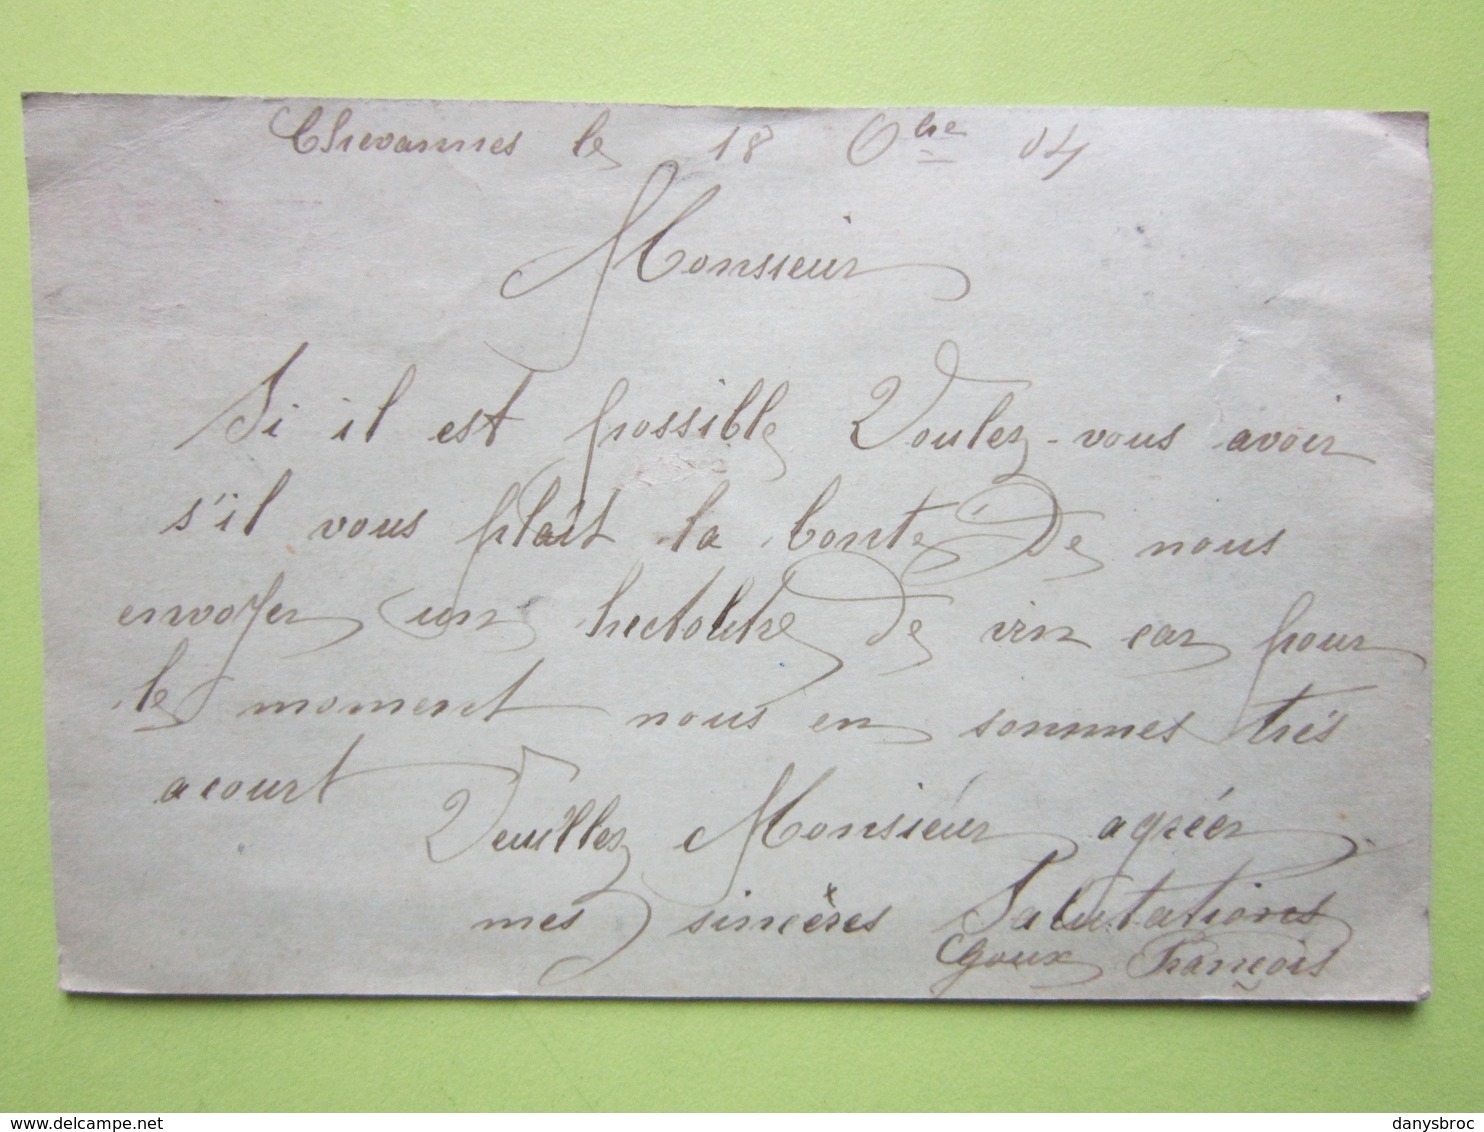 Chevannes le 18 Obre 04
Monsieur
Si il est possible Voulez-vous avoir
s'il vous plait la bonté de nous
envoyer un hectolitre de vin car pour
le moment nous en sommes très
acourt
Veuillez Monsieur agréer
mes sincères Salutations
Goux François
www.delcampe.net
danysbroc